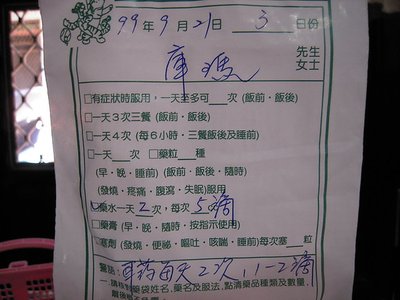 99年9月21日 3 日份
庫瑪 先生
女士
□有症狀時服用,一天至多可__次(飯前・飯後)
□一天3次三餐(飯前・飯後)
□一天4次(每6小時・三餐飯後及睡前)
□一天__次 □藥粒__種
(早・晚・睡前)(飯前・飯後・隨時)
(發燒・疼痛・腹瀉・失眠)服用
藥水一天2次,每次5滴
□藥膏(早・晚・隨時・按指示使用)
□塞劑(發燒・便祕・嘔吐・咳喘・睡前)每次塞__粒
耳药每天2次,1-2滴
藥袋姓名、藥名及服法,點清藥品種類及數量,